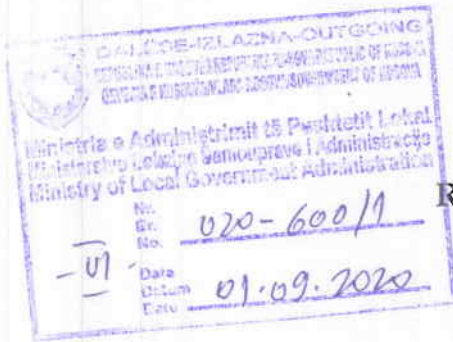 DALËSE-IZLAZNA-OUTGOING
Ministria e Administrimit të Pushtetit Lokal
Ministarstvo Lokalne Samouprave i Administracije
Ministry of Local Government Administration
Nr.
Br.
No. 020-600/1
- VI -
Data
Datum
Date 01.09.2020
R